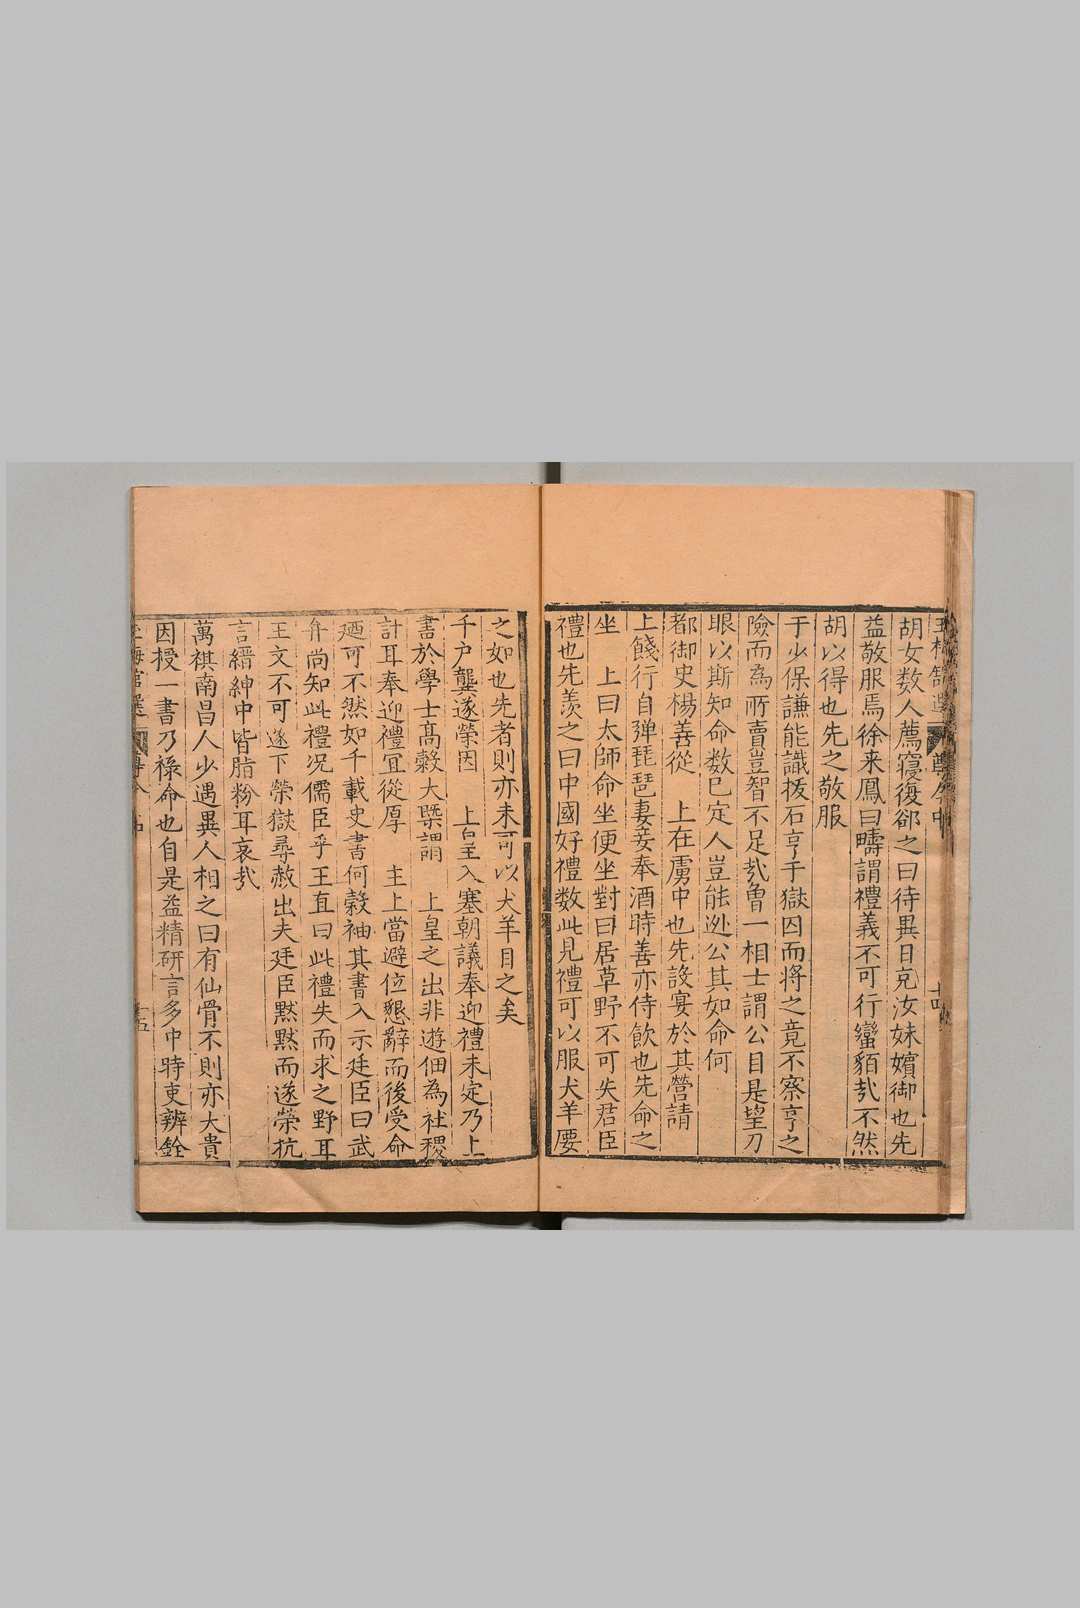 胡女数人薦寢復郤之曰待異日克汝妹嬪御也先
益敬服焉徐来鳳曰疇謂禮義不可行蠻貊㢤不然
胡以得也先之敬服
于少保謙能識拔石亨于獄囚而将之竟不察亨之
險而為所賣豈智不足㢤曾一相士謂公目是望刀
眼以斯知命数已定人豈能逃公其如命何
都御史楊善從　上在虜中也先設宴於其營請
上餞行自弹琵琶妻妾奉酒時善亦侍飲也先命之
坐　上曰太師命坐便坐對曰居草野不可失君臣
禮也先羨之曰中國好禮数此見禮可以服犬羊
之如也先者則亦未可以犬羊目之矣
千户龔遂榮因　上皇入塞朝議奉迎禮未定乃上
書於學士髙穀大槩謂　上皇之出非遊佃為社稷
計耳奉迎禮宜從厚　主上當避位懇辭而後受命
廼可不然如千載史書何穀袖其書入示廷臣曰武
弁尚知此禮况儒臣乎王直曰此禮失而求之野耳
王文不可遂下榮獄尋赦出夫廷臣黙黙而遂榮抗
言縉紳中皆脂粉耳哀㢤
萬祺南昌人少遇異人相之曰有仙骨不則亦大貴
因授一書乃禄命也自是益精研言多中時吏辨銓
十五